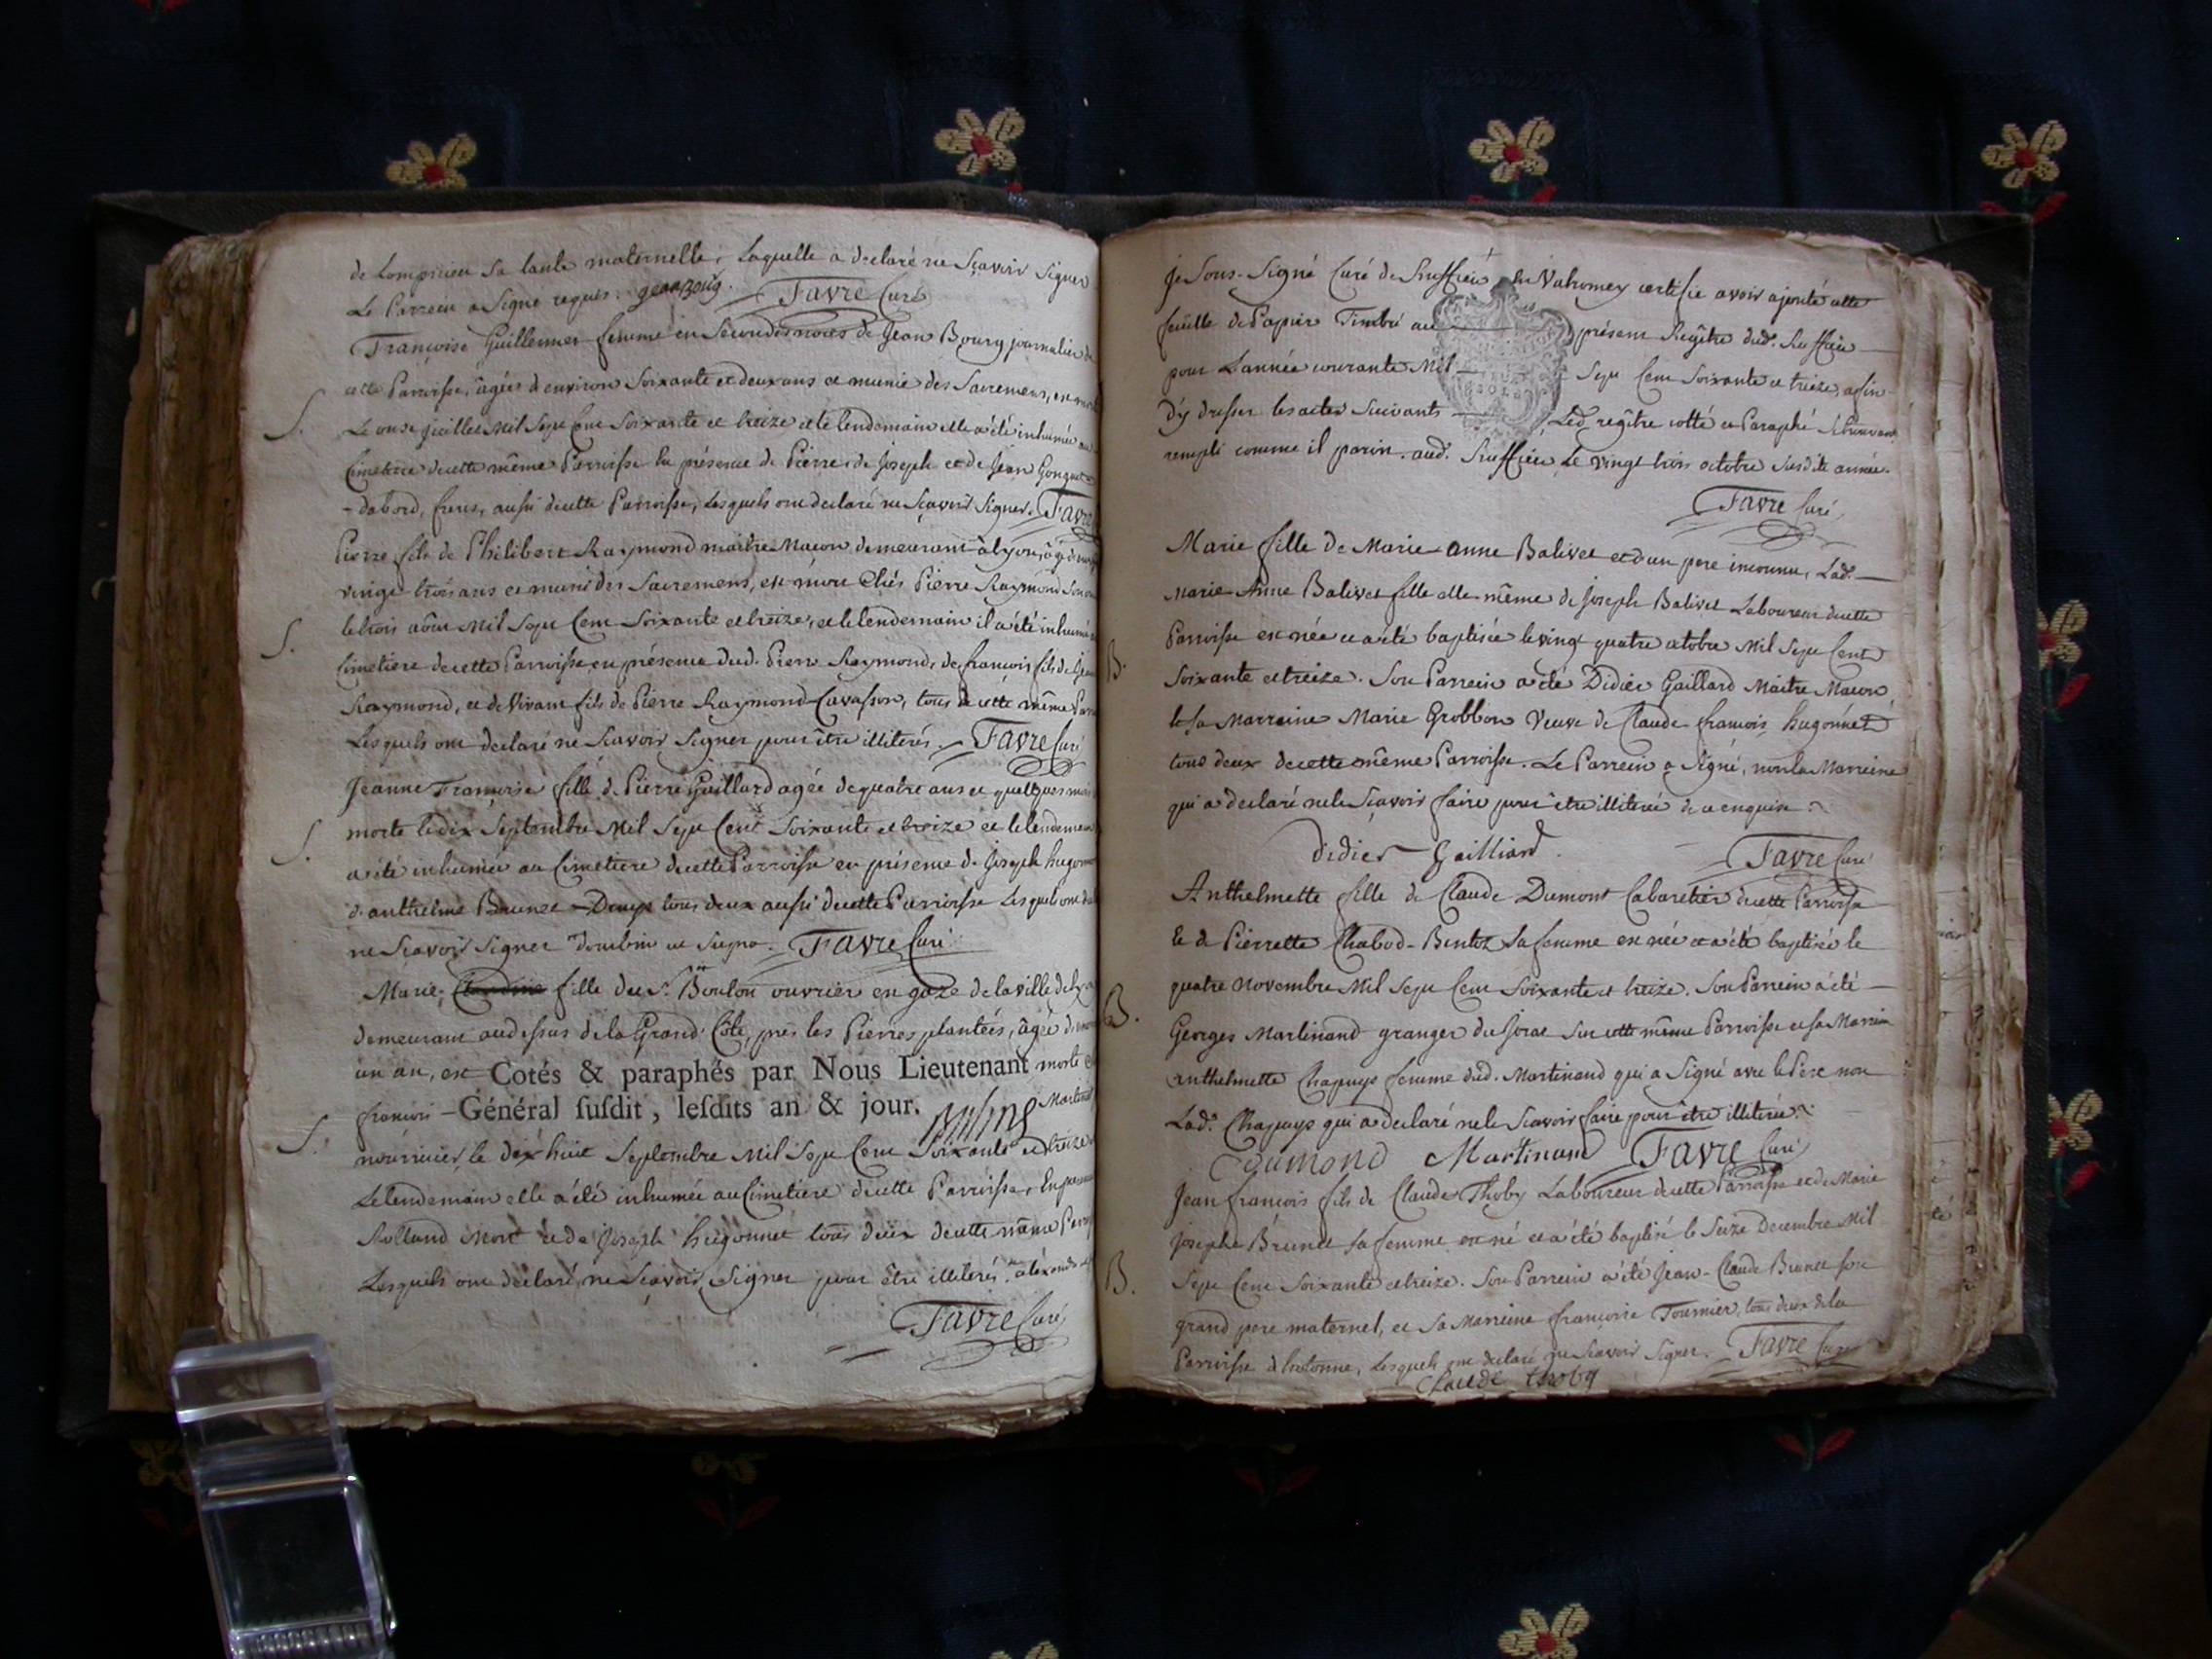 de Lompnieu sa tante maternelle, Laquelle a declaré ne Sçavoir signer
Le Parrein a Signé requis. jean Bourg. Favre Curé
Françoise Guillermet femme en Secondes noces de Jean Bourg journalier de
cette Parroisse, âgée d'environ Soixante et deux ans et munie des Sacremens, est morte
Le onze juillet Mil Sept Cent Soixante et treize et le lendemain elle a été inhumée au
Cimetiere de cette même Parroisse En présence de Pierre, de Joseph et de Jean
- dabord, freres, aussi de cette Parroisse, Lesquels ont declaré ne Sçavoir Signer. Favre
Pierre fils de Philibert Raymond maitre Macon demeurant à lyon, âgé de
vingt trois ans et muni des Sacremens, est mort Chés Pierre Raymond Son
le trois aôut Mil Sept Cent Soixante et treize, et le lendemain il a été inhumé
Cimetiere de cette Parroisse en présence dud. Pierre Raymond, de françois fils de
Raymond, et de Vivant fils de Pierre Raymond Cavasson, tous de cette même
Lesquels ont declaré ne Scavoir Signer pour être illiterés. Favre Curé
S.
S.
Jeanne Françoise fille de Pierre Gaillard agée de quatre ans et quelques mois
morte le dix Septembre Mil Sept Cent Soixante et treize et le lendemain
a été inhumée au Cimetiere de cette Parroisse en présence de Joseph hugonnet
d'anthelme Brunet tous deux aussi de cette Parroisse Lesquels ont
ne Sçavoir Signer Favre Curé
S.
Marie fille du Sr. Boulon ouvrier en gaze de la ville de
demeurant au dessus de la Grand' Côte, près les Pierres plantées, âgée d'
un an, est Cotés & paraphés par Nous Lieutenant morte
françois - Général susdit, lesdits an & jour. Martinet
nourricier, le dix huit Septembre Mil Sept Cent Soixante et treize
Le lendemain elle a été inhumée au Cimetiere de cette Parroisse, En
Rolland Mort et de Joseph hugonnet tous deux de cette même
Lesquels ont declaré ne Scavoir Signer pour être illiterés
S.
Favre Curé
Je Sous-Signé Curé de Ruffieu en Valromey certifie avoir ajouté cette
feuille de Papier Timbré au présent Regître dud. Ruffieu
pour L'année courante Mil Sept Cent Soixante et treize, afin
d'y dresser les actes Suivants Led. regître cotté et Paraphé se trouvant
rempli comme il paroit. aud. Ruffieu Le vingt trois octobre Susdite année.
Favre Curé
Marie fille de Marie-Anne Balivet et d'un pere inconnu, Lad.
Marie-Anne Balivet fille elle-même de Joseph Balivet Laboureur de cette
Parroisse est née et a été baptisée le vingt quatre octobre Mil Sept Cent
B.
Soixante et treize. Son Parrein a été Didier Gaillard Maitre Macon
et sa Marreine Marie Grobbon Veuve de Claude françois hugonnet
tous deux de cette même Parroisse. Le Parrein a Signé, non la Marreine
qui a declaré ne le Sçavoir faire pour être illiterée de ce enquise.
didier Gailliard. Favre Curé
Anthelmette fille de Claude Dumont Cabaretier de cette Parroisse
Et de Pierrette Chabod-Bentoz sa femme est née et a été baptisée le
quatre Novembre Mil Sept Cent Soixante et treize. Son Parrein a été
B.
Georges Martinand granger du Sorat sur cette même Parroisse et sa Marreine
Anthelmette Chapuys femme dud. Martinand qui a Signé avec le Pere non
Lad. Chapuys qui a declaré ne le Sçavoir faire pour être illiterée.
C dumond Martinand Favre Curé
Jean françois fils de Claude Thoby Laboureur de cette Parroisse et de Marie
Josephe Brunet sa femme est né et a été baptisé le Seize Decembre Mil
B.
Sept Cent Soixante et treize. Son Parrein a été Jean-Claude Brunet son
grand pere maternel, et Sa Marreine françoise Tournier, tous deux de la
Parroisse d'hotonne, Lesquels ont declaré ne Scavoir Signer. Favre Curé
Claude thoby